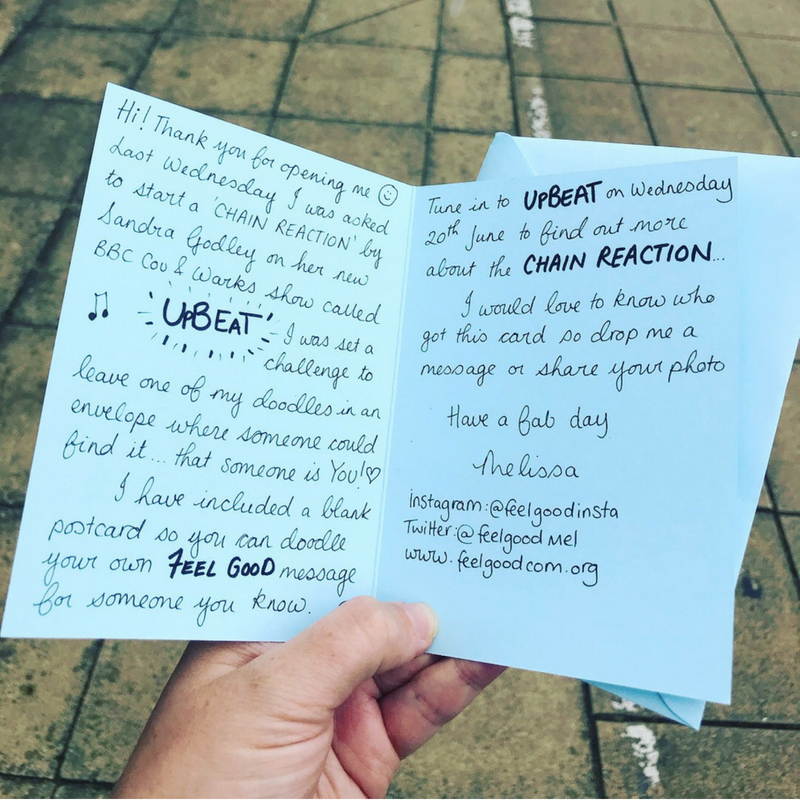 Hi! Thank you for opening me ☺
Last Wednesday I was asked
to start a 'CHAIN REACTION' by
Sandra Godley on her new
BBC Cov & Warks show called
♫ UPBEAT I was set a
challenge to
leave one of my doodles in an
envelope where someone could
find it... that someone is You!♡
I have included a blank
postcard so you can doodle
your own FEEL GOOD message
for someone you know.
Tune in to UPBEAT on Wednesday
20th June to find out more
about the CHAIN REACTION...
I would love to know who
got this card so drop me a
message or share your photo
Have a fab day
Melissa
instagram:@feelgoodinsta
Twitter:@feelgoodMel
www.feelgoodcom.org